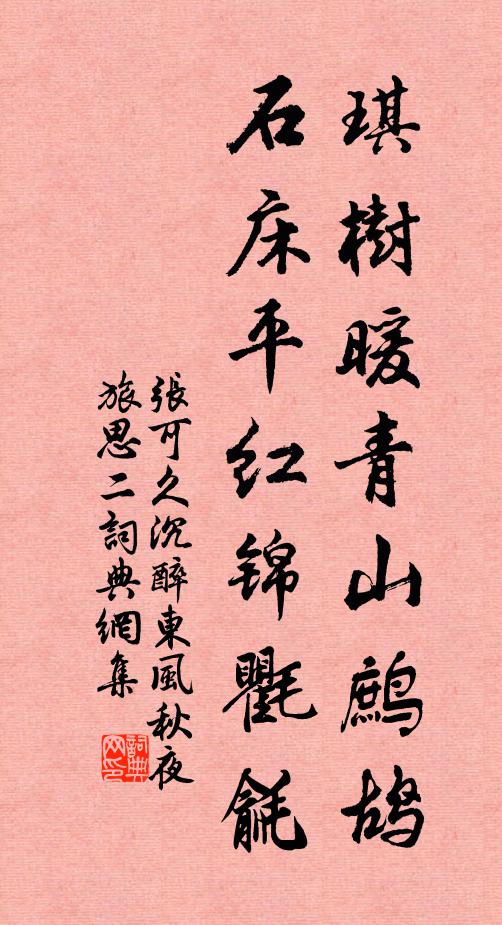 琪樹暖青山鷓鴣
石床平红錦氍毹
張可久沉醉東風秋夜
旅思二詞典網集
詞典网印